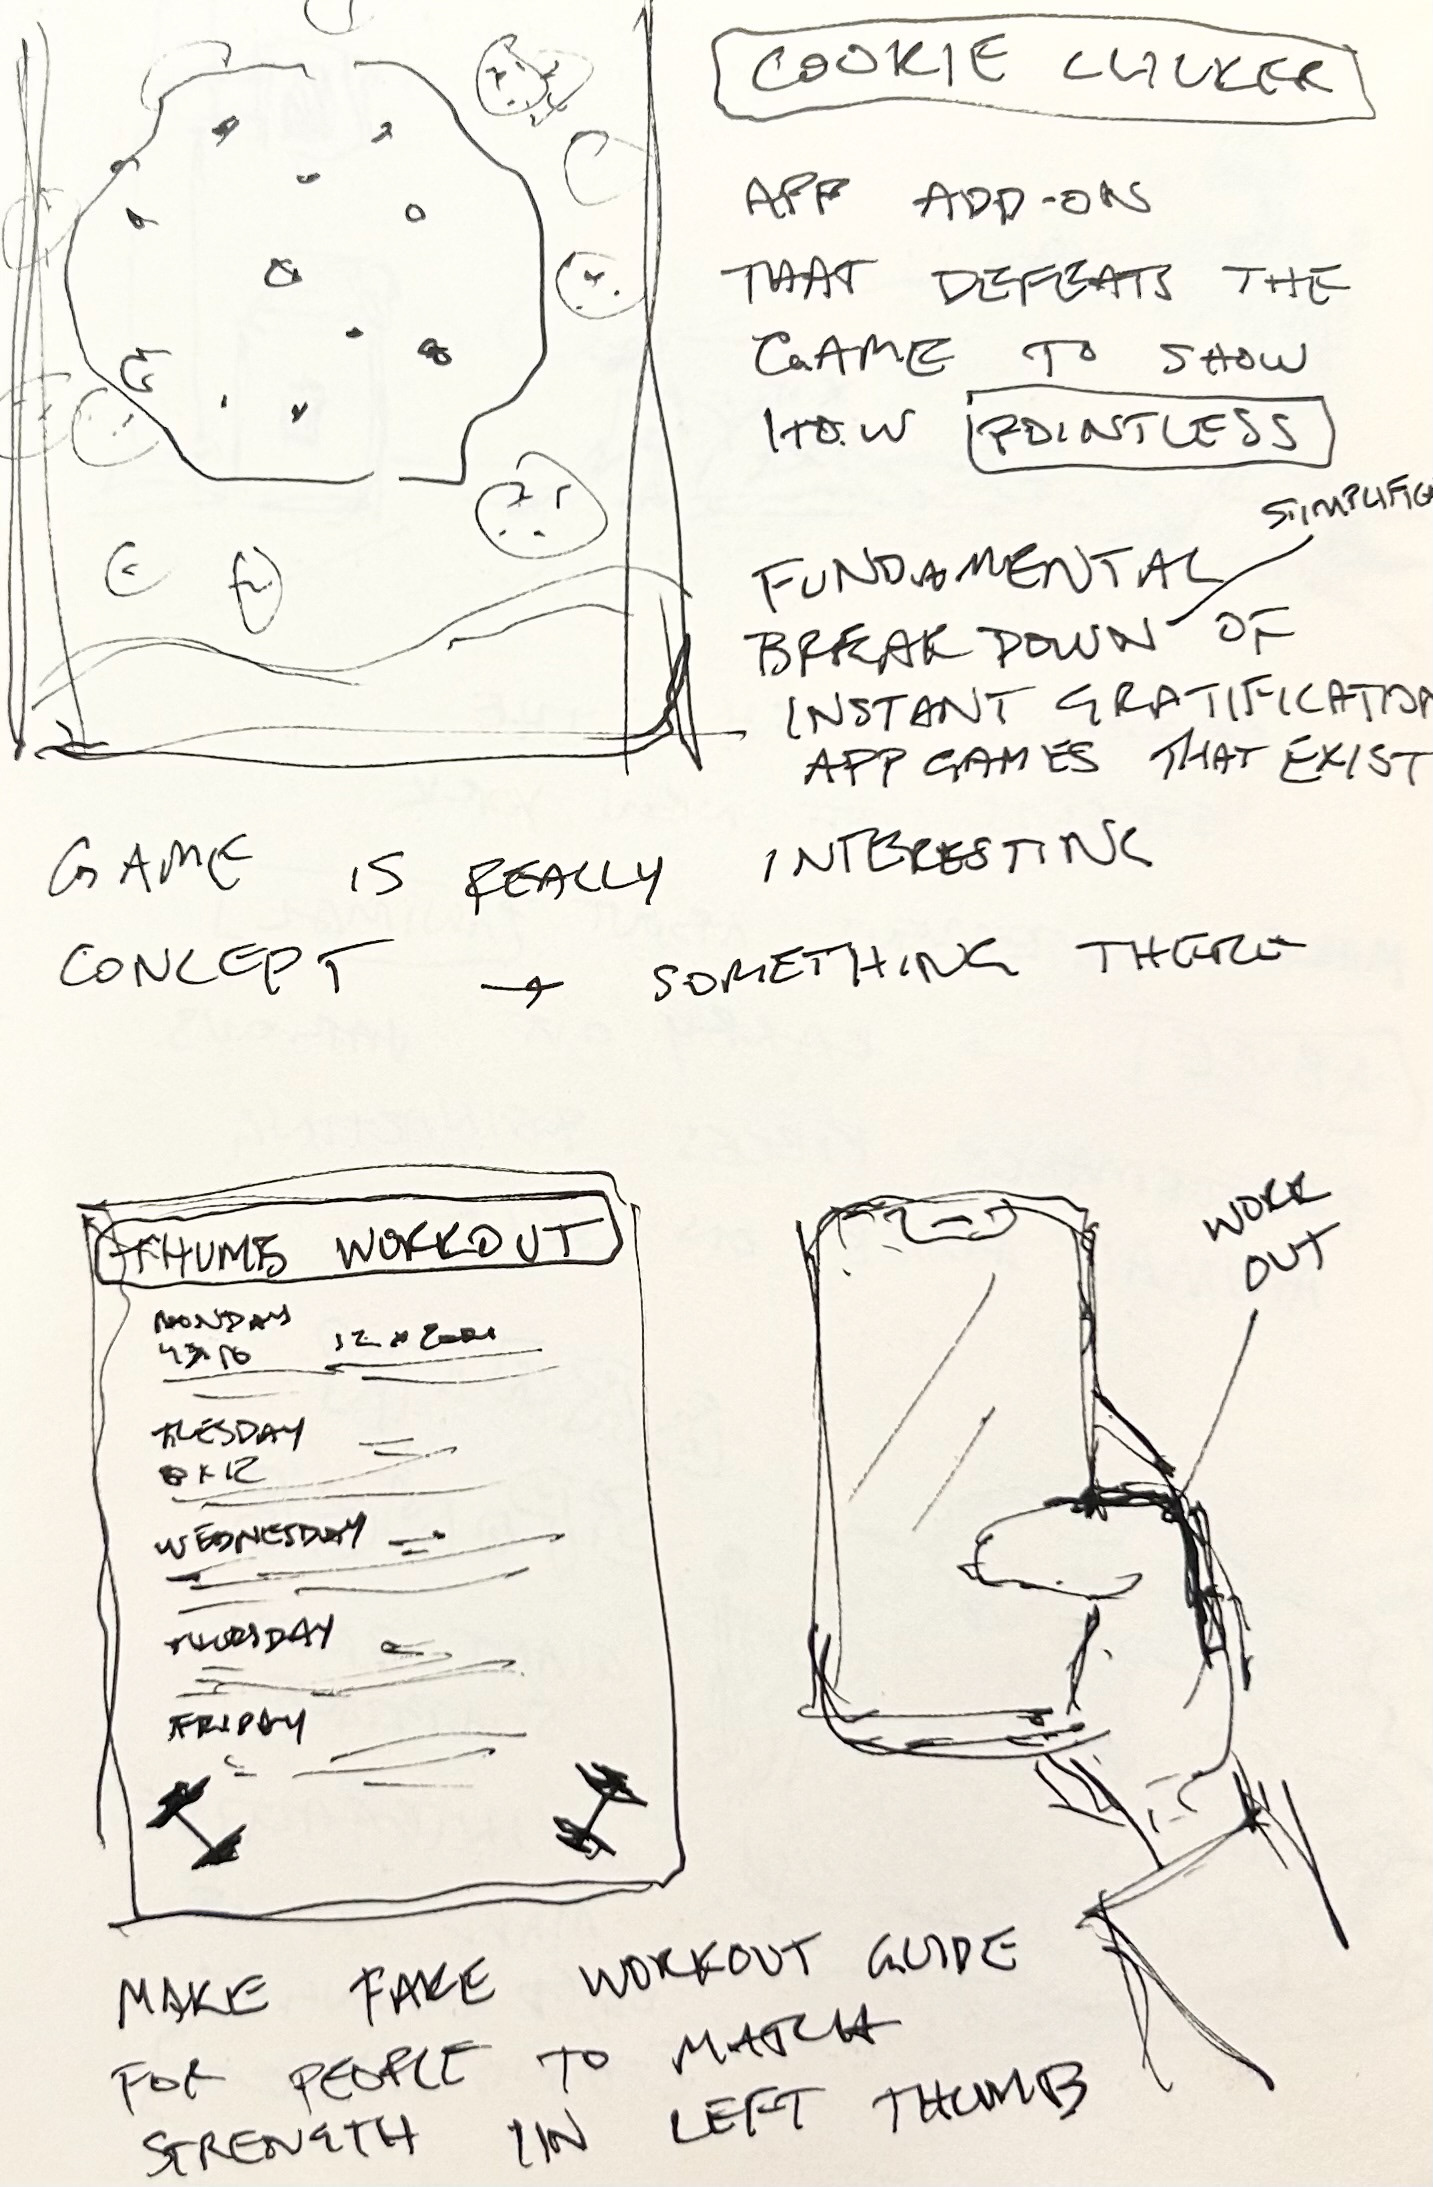 COOKIE CLICKER
APP ADD-ON
THAT DEFEATS THE
GAME TO SHOW
HOW POINTLESS
FUNDAMENTAL
BREAKDOWN OF
INSTANT GRATIFICATION
APP GAMES THAT EXIST
GAME IS REALLY INTERESTING
CONCEPT → SOMETHING THERE
THUMB WORKOUT
MONDAY
TUESDAY
8 x 12
WEDNESDAY
THURSDAY
FRIDAY
WORK
OUT
MAKE FAKE WORKOUT GUIDE
FOR PEOPLE TO MATCH
STRENGTH IN LEFT THUMB